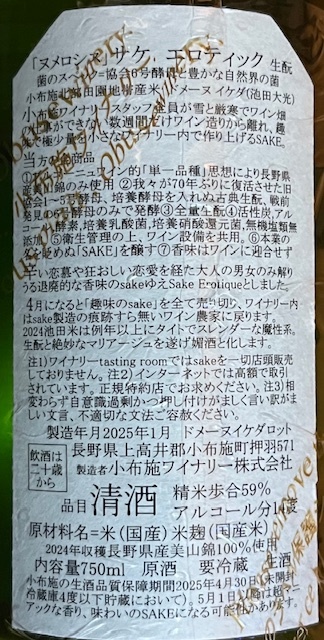 「ヌメロシスサケ, エロティック 生酛
菌のスペック=協会6号酵母と豊かな自然界の菌
小布施北部田園地帯産米 ドメーヌ イケダ(池田大光)
小布施ワイナリースタッフ全員が雪と厳寒でワイン畑
仕事ができない数週間だけワイン造りから離れ、趣
味で極少量を小さなワイナリー内で作り上げるSAKE。
当方の全商品
「単一品種」思想により長野県
産美山錦のみ使用 ②我々が70年ぶりに復活させた旧
協会1～5号酵母、培養酵母を入れぬ古典生酛、戦前
発見の6号酵母のみで発酵③全量生酛④活性炭,アル
コール,酵素,培養乳酸菌,培養硝酸還元菌,無機塩類無
添加 ⑤衛生管理の上、ワイン設備を共用。⑥本業の
「SAKE」を醸す⑦香味はワインに迎合せず
辛い恋慕や狂おしい恋愛を経た大人の男女のみ解り
うる退廃的な香味のsakeゆえSake Erotiqueとしました。
4月になると「趣味のsake」を全て売り切り、ワイナリー内
はsake製造の痕跡すら無いワイン農家に戻ります。
2024池田米は例年以上にタイトでスレンダーな魔性系。
生酛と絶妙なマリアージュを遂げ媚酒と化します。
注1)ワイナリーtasting roomではsakeを一切店頭販売
しておりません。注2)インターネットでは高額で取引
されています。正規特約店でお求めください。注3)相
変わらず自意識過剰かつ押し付けがましく言い訳がま
しい文言、不適切な文法ご容赦ください。
製造年月2025年1月 ドメーヌイケダロット
長野県上高井郡小布施町押羽571
製造者小布施ワイナリー株式会社
飲酒は
二十歳
から
品目 清酒 精米歩合59%
アルコール分14度
原材料名=米(国産)米麹(国産米)
2024年収穫長野県産美山錦100%使用
内容量750ml 原酒 要冷蔵 生酒
小布施の生酒品質保障期間2025年4月30日(未開封
冷蔵庫4度以下貯蔵において)。5月1日以降は超マニ
アックな香り、味わいのSAKEになる可能性があります。